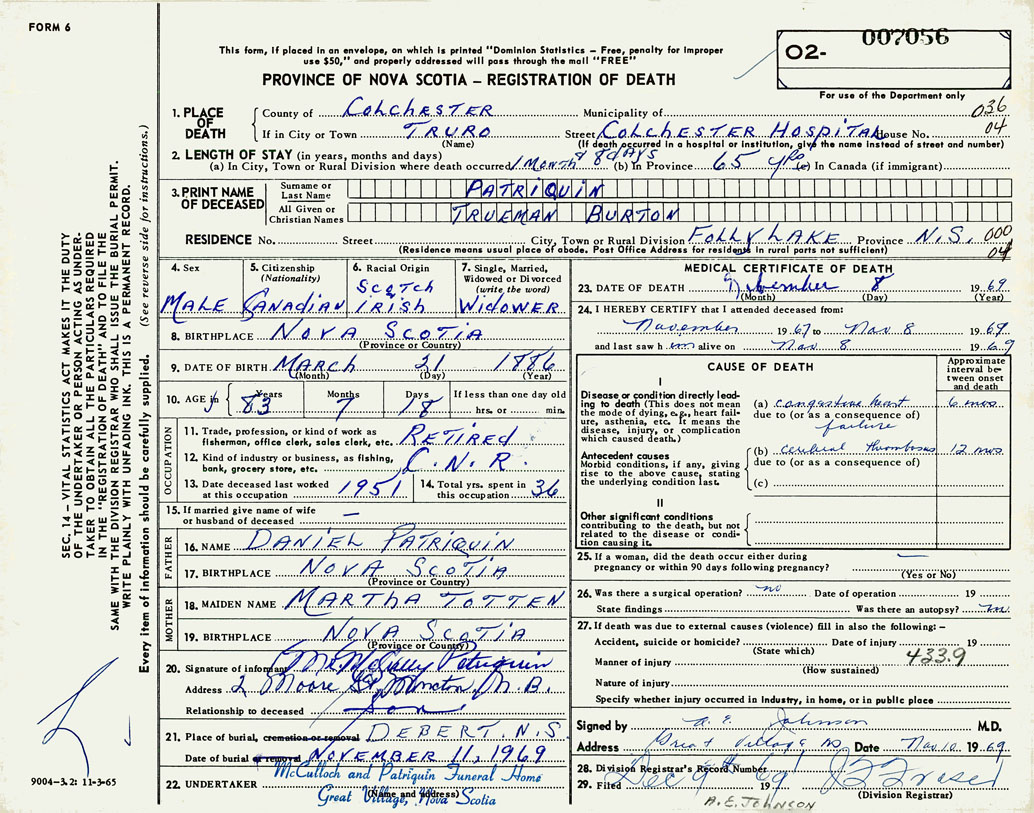 FORM 6
This form, if placed in an envelope, on which is printed "Dominion Statistics – Free, penalty for improper
use $50," and properly addressed will pass through the mail "FREE"
PROVINCE OF NOVA SCOTIA – REGISTRATION OF DEATH
02- 007056
For use of the Department only
1. PLACE OF DEATH
County of COLCHESTER Municipality of 036
If in City or Town TRURO Street COLCHESTER HOSPITAL House No. 04
(Name) (If death occurred in a hospital or institution, give the name instead of street and number)
2. LENGTH OF STAY (in years, months and days)
(a) In City, Town or Rural Division where death occurred 1 Month 8 days (b) In Province 65 yrs (c) In Canada (if immigrant)
3. PRINT NAME OF DECEASED
Surname or Last Name PATRIQUIN
All Given or Christian Names TRUEMAN BURTON
RESIDENCE No. Street City, Town or Rural Division FOLLY LAKE Province N.S. 000
(Residence means usual place of abode. Post Office Address for residents in rural parts not sufficient) 04
4. Sex MALE
5. Citizenship (Nationality) Canadian
6. Racial Origin Scotch Irish
7. Single, Married, Widowed or Divorced (write the word) WIDOWER
8. BIRTHPLACE NOVA SCOTIA
(Province or Country)
9. DATE OF BIRTH MARCH 21 1886
(Month) (Day) (Year)
10. AGE in Years Months Days If less than one day old
83 7 18 hrs. or min.
OCCUPATION
11. Trade, profession, or kind of work as fisherman, office clerk, sales clerk, etc. RETIRED
12. Kind of industry or business, as fishing, bank, grocery store, etc. C.N.R.
13. Date deceased last worked at this occupation 1951
14. Total yrs. spent in this occupation 36
15. If married give name of wife or husband of deceased —
FATHER
16. NAME DANIEL PATRIQUIN
17. BIRTHPLACE NOVA SCOTIA
(Province or Country)
MOTHER
18. MAIDEN NAME MARTHA TOTTEN
19. BIRTHPLACE NOVA SCOTIA
(Province or Country)
20. Signature of informant Patriquin
Address 2 Moore St, Moncton, N.B.
Relationship to deceased Son
21. Place of burial, cremation or removal DEBERT. N.S.
Date of burial or removal NOVEMBER 11, 1969
22. UNDERTAKER McCulloch and Patriquin Funeral Home
(Name and address)
Great Village, Nova Scotia
MEDICAL CERTIFICATE OF DEATH
23. DATE OF DEATH November 8 1969
(Month) (Day) (Year)
24. I HEREBY CERTIFY that I attended deceased from:
November 1967 to Nov 8 1969
and last saw h im alive on Nov 8 1969
CAUSE OF DEATH
Approximate interval between onset and death
I
Disease or condition directly leading to death (This does not mean the mode of dying, e.g., heart failure, asthenia, etc. It means the disease, injury, or complication which caused death.)
(a) congestive heart failure 6 mos
due to (or as a consequence of)
Antecedent causes
Morbid conditions, if any, giving rise to the above cause, stating the underlying condition last.
(b) cerebral thrombosis 12 mos
due to (or as a consequence of)
(c)
II
Other significant conditions contributing to the death, but not related to the disease or condition causing it.
25. If a woman, did the death occur either during pregnancy or within 90 days following pregnancy? —
(Yes or No)
26. Was there a surgical operation? no Date of operation 19
State findings Was there an autopsy? no
27. If death was due to external causes (violence) fill in also the following: –
Accident, suicide or homicide? Date of injury 19
(State which)
Manner of injury 433.9
(How sustained)
Nature of injury
Specify whether injury occurred in Industry, in home, or in public place
Signed by A. E. Johnson M.D.
Address Great Village NS Date Nov 10 1969
28. Division Registrar's Record Number
29. Filed Dec 9th 1969
(Division Registrar)
A.E. JOHNSON
SEC. 14 – VITAL STATISTICS ACT MAKES IT THE DUTY
OF THE UNDERTAKER OR PERSON ACTING AS UNDER-
TAKER TO OBTAIN ALL THE PARTICULARS REQUIRED
IN THE "REGISTRATION OF DEATH" AND TO FILE THE
SAME WITH THE DIVISION REGISTRAR WHO SHALL ISSUE THE BURIAL PERMIT.
WRITE PLAINLY WITH UNFADING INK. THIS IS A PERMANENT RECORD.
Every item of information should be carefully supplied. (See reverse side for instructions.)
9004–3.2: 11-3-65